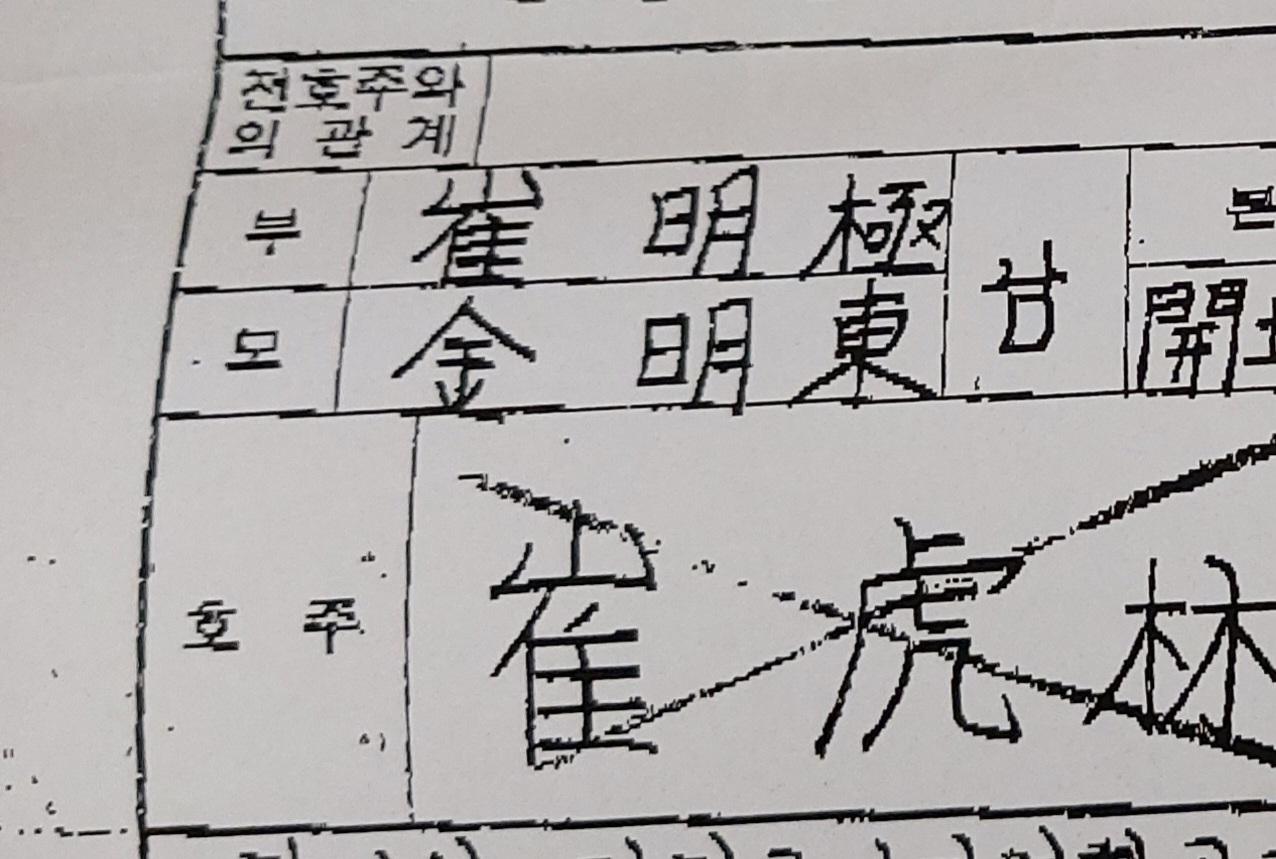 전호주와
의 관 계
부 崔 明 極
본
모 金 明 東
甘
開
호 주 崔 虎 林